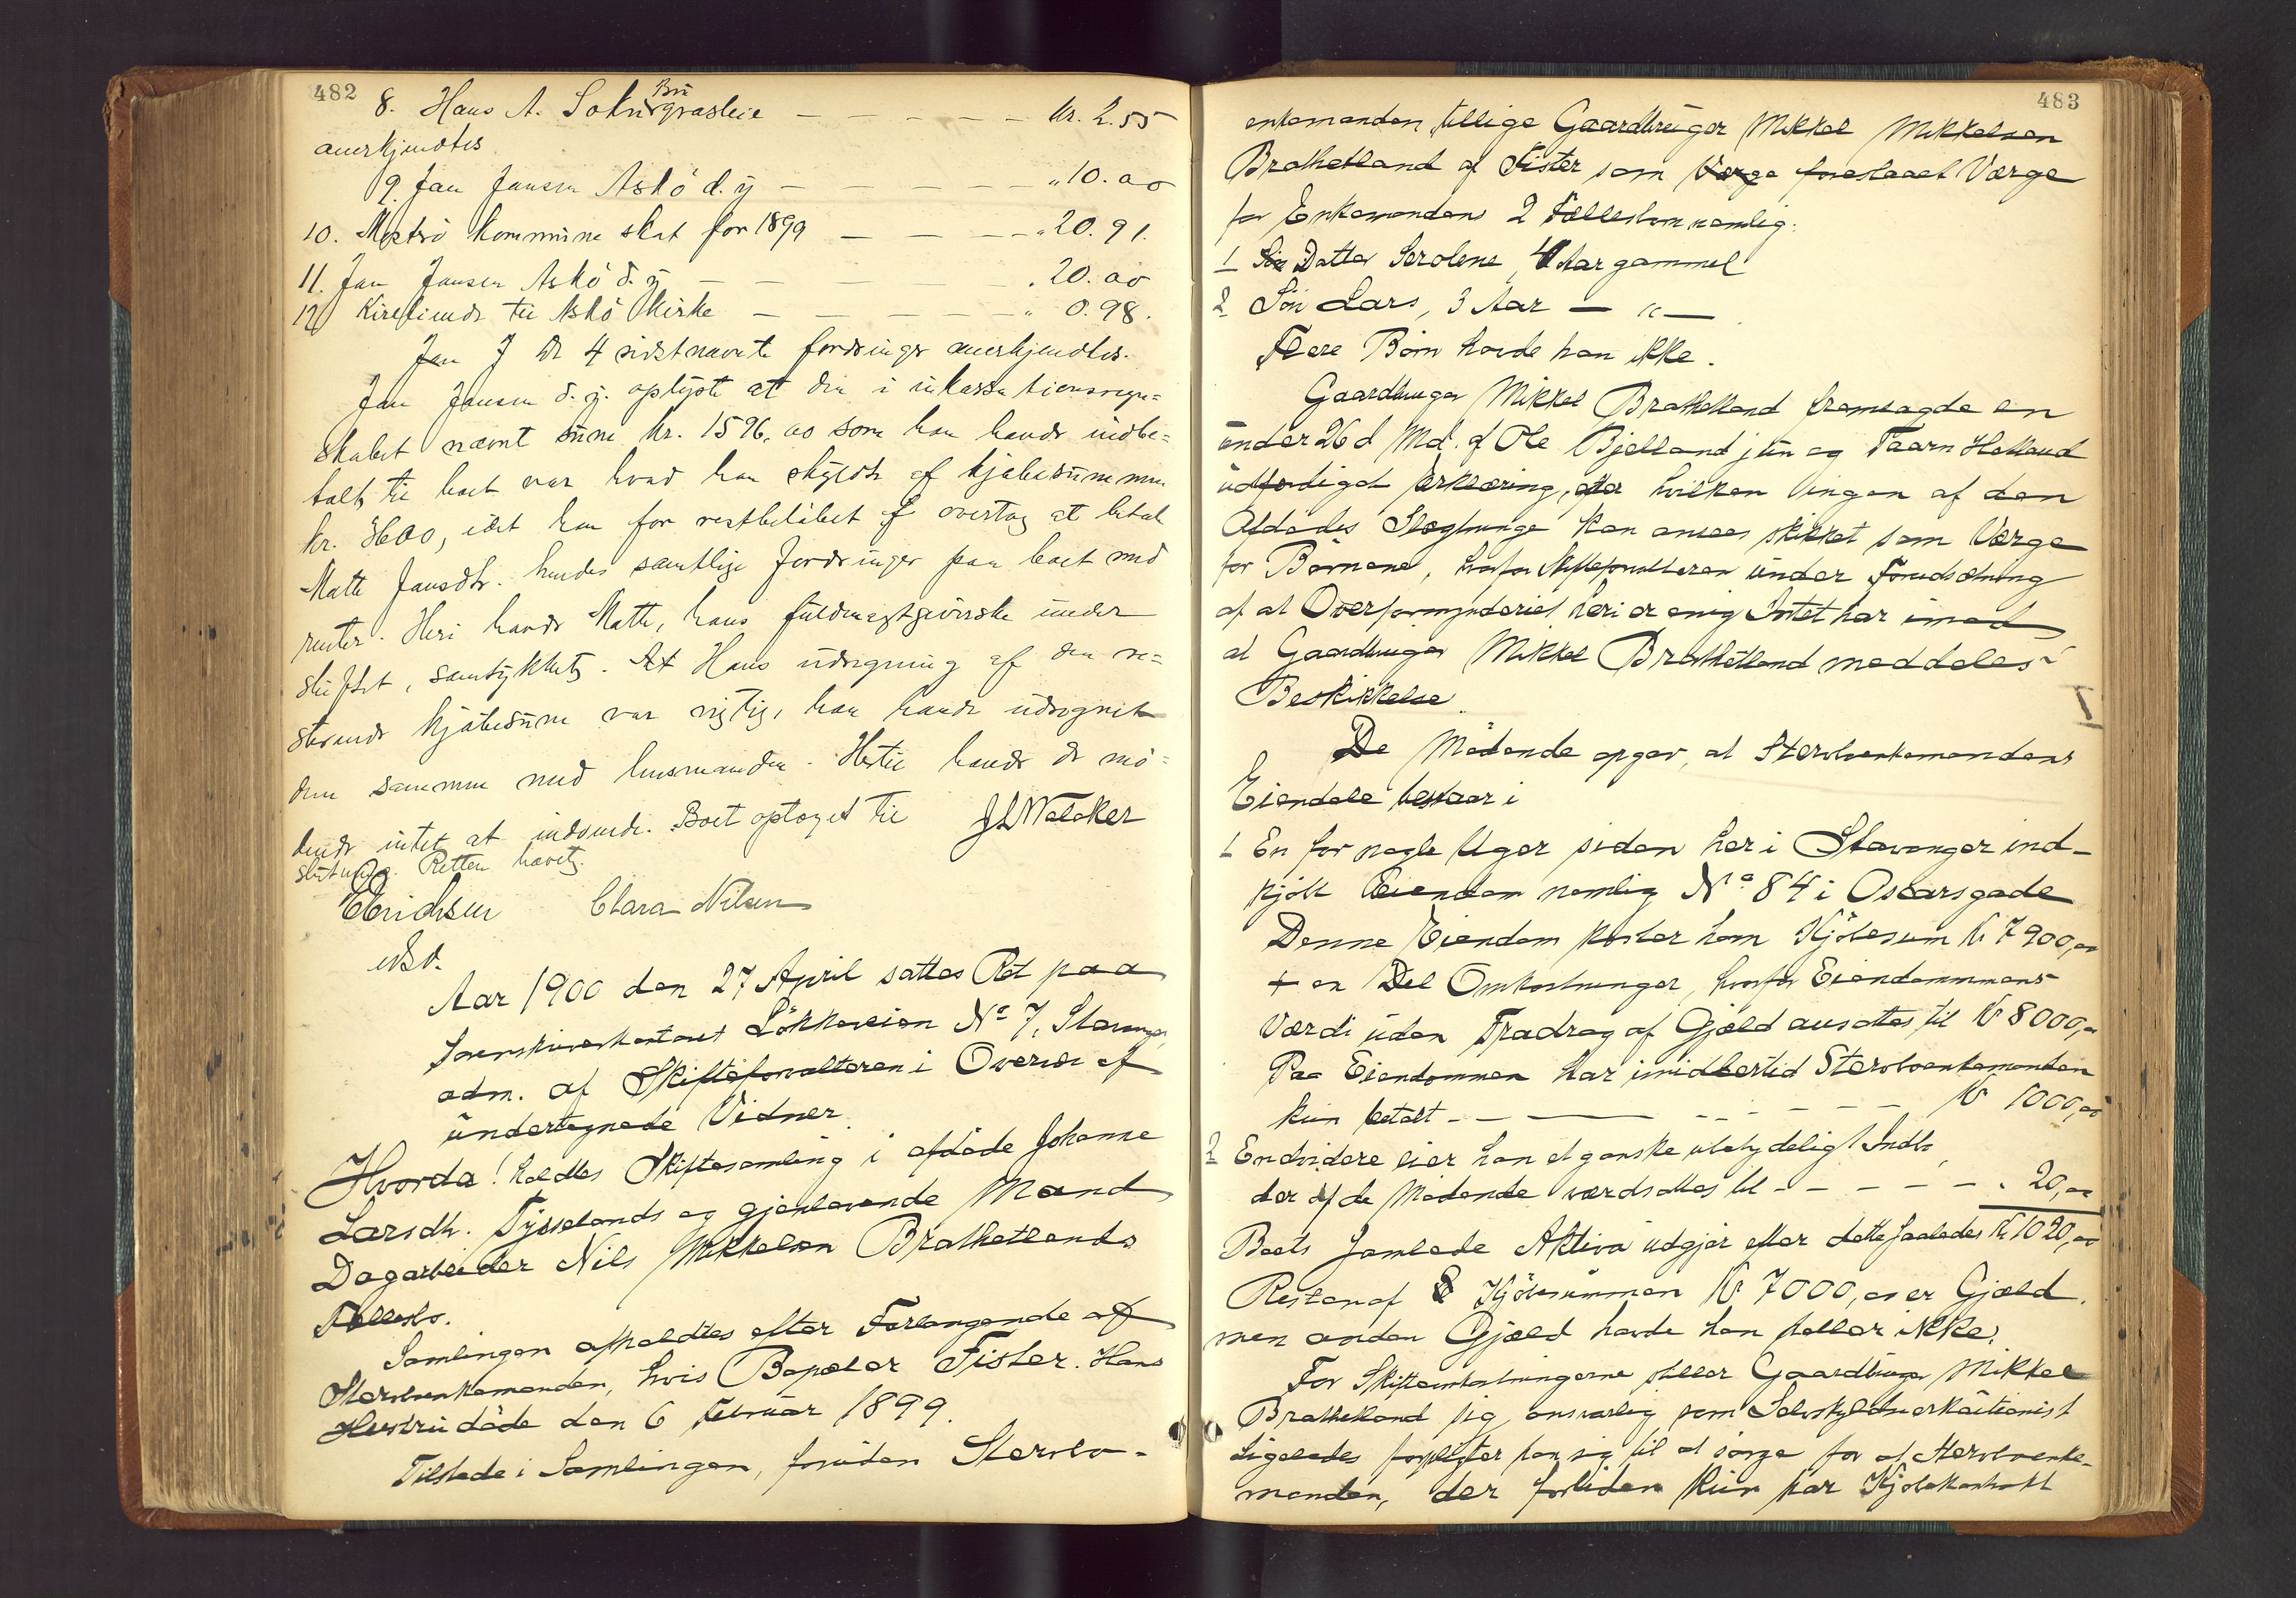 482
8. Hans A. Sokn Bu græsleie — — — — — Kr. 2.55
anerkjendtes
9. Jan Jansen Askö d. y — — — — — " 10.00
10. Mosterö Kommune skat for 1899 — — — — " 20.91.
11. Jan Jansen Askö d. y — — — — — " 20.00
12) til Askö Kirke — — — — — " 0.98.
4 sidstnævnte fordringer anerkjendtes.
Jan Jansen d. y. oplyste at den i inkassationsregn-
skabet nævnt sum kr. 1596,00 som han havde indbe-
talt til boet var hvad han skyldte af kjöbesummen
kr. 3600, idet han for restbelöbet overtog at betale
Matte Jansdtr. hendes samtlige fordringer paa boet med
renter. Heri havde Matte, hans fuldmægtgiverske under
skiftet, samtykket. At Hans udregning af den re-
sterende kjöbesum var rigtig, han havde udregnet
den sammen med lensmanden. Hertil havde de mö-
dende intet at indvende. Boet optaget til JLWalaker
slutning. Retten hævet.
Erichsen Clara Nilsen
cst.
Aar 1900 den 27 April sattes Ret paa
Sorenskriverkontoret Lökkeveien No 7, Stavanger,
adm. af Skifteforvalteren i Overvær af
undertegnede Vidner.
Hvorda! holdtes Skiftesamling i afdöde Johanne
Larsdtr. Tysselands og gjenlevende Mand
Dagarbeider Nils Mikkelsen Brathetlands
Fællesbo.
Samlingen afholdtes efter Forlangende af
Stervboenkemanden, hvis Bopæl er Fister. Hans
Hustru döde den 6 Februar 1899.
Tilstede i Samlingen, foruden Stervbo-
483
enkemanden tillige Gaardbruger Mikkel Mikkelsen
Brathetland af Fister som Værge foreslaaet Værge
for Enkemandens 2 Fællesbarn nemlig:
1 Sön Datter Serolene, 4 Aar gammel
2 Sön Lars, 3 Aar — " —
Flere Börn havde han ikke.
Gaardbruger Mikkel Brathetland fremlagde en
under 26 d Md. af Ole Bjelland jun og Taarn Helland
udfærdiget Erklæring, efter hvilken ingen af den
Afdödes Slægtninge kan ansees skikket som Værge
for Börnene, hvorfor Skifteforvalteren under Forudsætning
af at Overformynderiet heri er enig Intet har imod
at Gaardbruger Mikkel Brathetland meddeles
Beskikkelse.
De Mödende opgav, at Stervboenkemandens
Eiendele bestaar i
1 En for nogle Uger siden her i Stavanger ind-
kjöbt Eiendom nemlig No 84 i Oscarsgade
Denne Eiendom koster ham Kjöbesum Kr 7900,00
+ en Del Omkostninger, hvorfor Eiendommens
Værdi uden Fradrag af Gjæld ansattes til Kr 8000,00
Paa Eiendommen har imidlertid Stervboenkemanden
kun betalt — — — — — — Kr 1000,00
2 Endvidere eier han et ganske ubetydeligt Indbo,
der af de Mödende værdsattes til — — — — — " 20,00
Boets samlede Aktiva udgjör efter dette saaledes Kr 1020,00
Resten af Kjöbesummen Kr 7000,00 er Gjæld,
men anden Gjæld havde han heller ikke.
For Skifteomkostningerne stiller Gaardbruger Mikkel
Brathetland sig ansvarlig som Selvskyldnerkautionist
Ligeledes forpligter han sig til at sörge for at Stervboenke-
manden, der forliden kun har Kjöbekontrakt